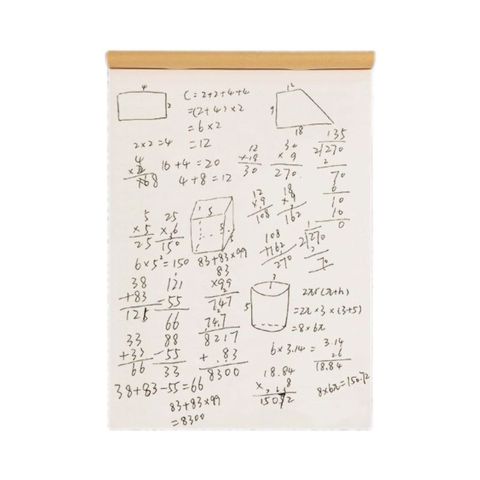 4
2
C=2+2+4+4
=(2+4)×2
=6×2
=12
2×2=4
16+4=20
4+8=12
12
9
18
12
+18
30
30
×9
270
135
2√270
2
70
6
10
10
0
5
×5
25
25
×6
150
6×5²=150
5
5
5
12
×9
108
18
×9
162
108
+162
270
1
2√270
2
70
83+83×99
38
+83
121
121
-55
66
83
×99
747
747
8217
+ 83
8300
33
+33
66
88
-55
33
38+83-55=66
83+83×99
=8300
3
5
2πr(r+h)
=2π×3×(3+5)
=8×6π
6×3.14=
3.14
×6
18.84
18.84
× 8
150.72
8×6π=150.72